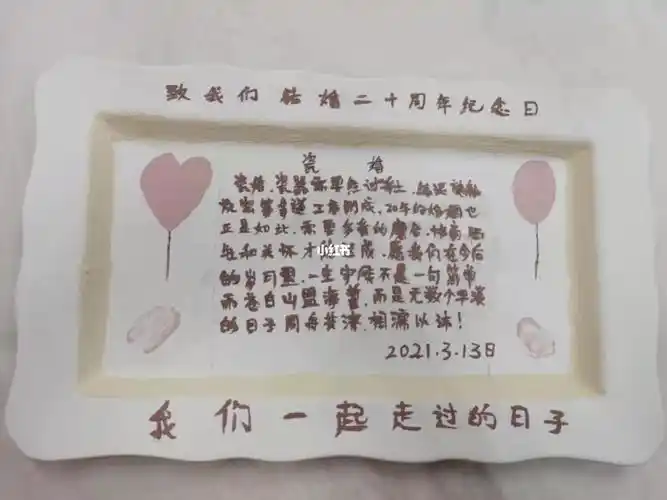 致我们结婚二十周年纪念日
瓷婚
瓷婚，瓷器需要经过
等多道工序制成，20年的婚姻也
正是如此，需要多年的磨合、
和关怀才能 成，愿我们在今后
的岁月里，一生守候不是一句简单
而苍白山盟海誓，而是无数个平淡
的日子同舟共济，相濡以沫！
小红书
2021.3.13日
我们一起走过的日子